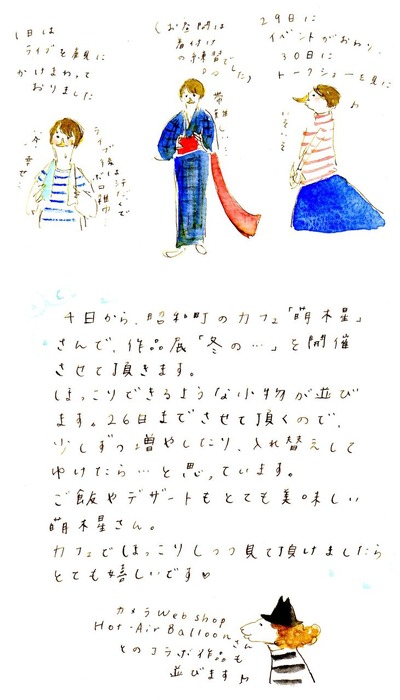 29日に
イベントがおわり、
30日に
トークショーを見に♪
いそいそ
(お昼間は
着付け
の練習で
した)
1日は
ライブを見に
かけまわって
おりました
ライブ後は汗だくで
ボロ雑巾…
今、幸せ…
千日から、昭和町のカフェ「萌木星」
さんで、作品展「冬の…」を開催
させて頂きます。
ほっこりできるような小物が並び
ます。26日までさせて頂くので、
少しずつ増やしたり、入れ替えして
ゆけたら…と思っています。
ご飯やデザートもとても美味しい
萌木星さん。
カフェでほっこりしつつ見て頂けましたら
とても嬉しいです♥
カメラWeb shop
Hot-Air Balloonさん
とのコラボ作品も
並びます♪